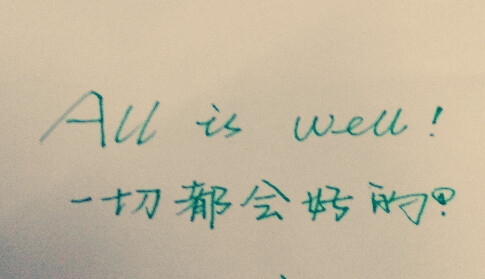 All is well!
一切都会好的?